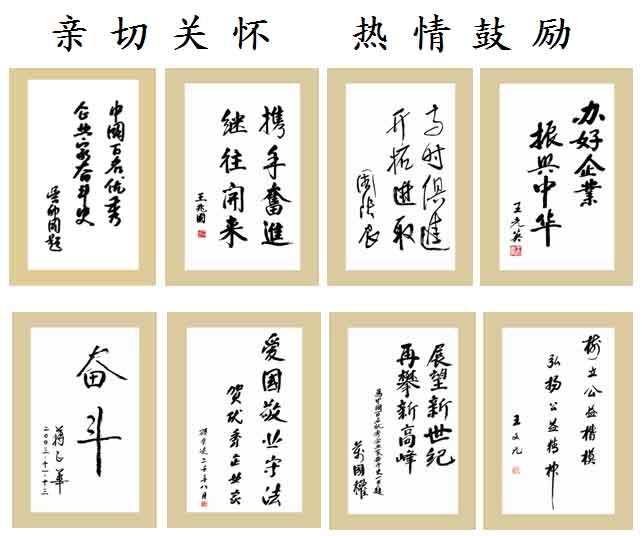 亲切关怀 热情鼓励
中国百名优秀
企业家奋斗史
携手奋進
继往开来
王兆国
与时俱進
开拓進取
周铁农
办好企業
振兴中华
王光英
奋斗
蒋正华
二〇〇三·十一·十三
爱国敬业守法
贺优秀企业家
二〇〇〇年八月
展望新世纪
再攀新高峰
萬國權
树立公益楷模
弘扬公益精神
王文元